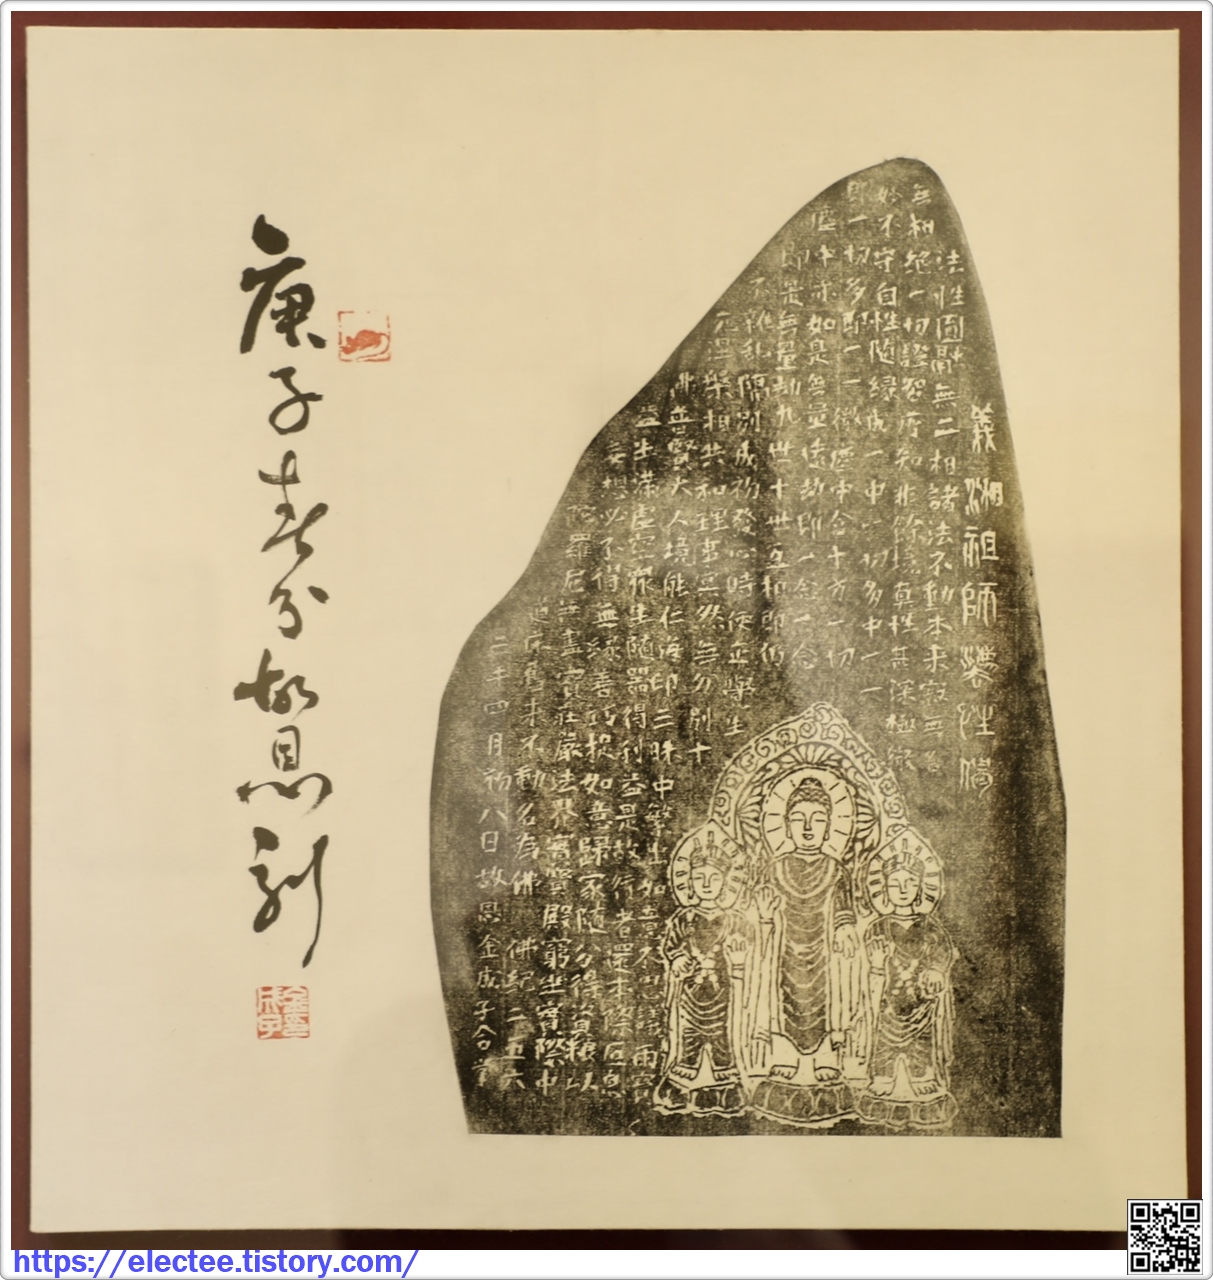 義湘祖師法性偈
法性圓融無二相諸法不動本來寂無名
無相絶一切證智所知非餘境真性甚深極微
妙不守自性隨緣成一中一切多中一一
即一切多即一一微塵中含十方一切
塵中亦如是無量遠劫即一念一念
即是無量劫九世十世互相即仍
不雜亂隔別成初發心時便正覺生
死涅槃相共和理事冥然無分別十
佛普賢大人境能仁海印三昧中繁出如意不思議雨寶
益生滿虛空衆生隨器得利益是故行者還本際叵息
妄想必不得無緣善巧捉如意歸家隨分得資糧以
陀羅尼無盡寶莊嚴法界實寶殿窮坐實際中
道床舊來不動名為佛 佛紀二五六
三年四月初八日故恩金成子合掌
庚子春分故恩刻
https://electee.tistory.com/